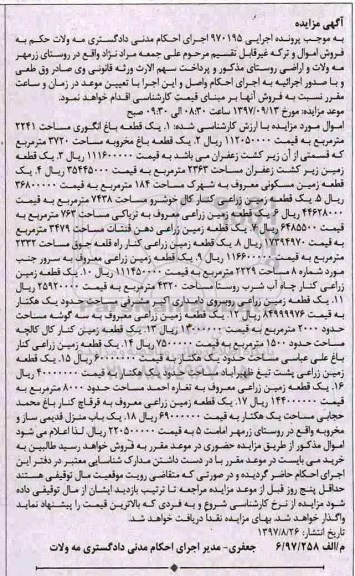 آگهی مزایده
به موجب پرونده اجرایی ۹۷۰۱۹۵ اجرای احکام مدنی دادگستری مه ولات حکم به
فروش اموال و ترکه غیرقابل تقسیم مرحوم علی جمعه مراد نژاد واقع در روستای زرمهر
مه ولات و اراضی روستای مذکور و پرداخت سهم الارث ورثه قانونی وی صادر وق طعی
و با صدور اجرائیه به اجرای احکام واصل و این اجرا با تعیین موعد در زمان و ساعت
مقرر نسبت به فروش آنها بر مبنای قیمت کارشناسی اقدام خواهد نمود.
موعد مزایده: مورخ ۱۳۹۷/۰۹/۱۳ ساعت ۰۸:۳۰ الی ۰۹:۳۰ صبح
اموال مورد مزایده با ارزش کارشناسی شده: ۱. یک قطعه باغ انگوری مساحت ۲۲۴۱
مترمربع به قیمت ۱۱۲۰۵۰۰۰۰ ریال ۲. یک قطعه باغ مخروبه مساحت ۳۷۲۰ مترمربع
که قسمتی از آن زیر کشت زعفران می باشد به قیمت ۱۱۱۶۰۰۰۰۰ ریال ۳. یک قطعه
زمین زیر کشت زعفران مساحت ۲۳۶۳ مترمربع به قیمت ۳۵۴۴۵۰۰۰ ریال ۴. یک
قطعه زمین مسکونی معروف به شهرک مساحت ۱۸۴ مترمربع به قیمت ۳۶۸۰۰۰۰۰
ریال ۵. یک قطعه زمین زراعی کنار کال خوشرو مساحت ۷۴۳۸ مترمربع به قیمت
۴۴۶۲۸۰۰۰ ریال ۶. یک قطعه زمین زراعی معروف به تریاکی مساحت ۷۶۳ مترمربع به
قیمت ۶۴۸۵۵۰۰ ریال ۷. یک قطعه زمین زراعی دهن قنات مساحت ۳۴۷۹ مترمربع
به قیمت ۱۷۳۹۴۹۷۰ ریال ۸. یک قطعه زمین زراعی کنار راه قلعه جوق مساحت ۲۳۳۲
مترمربع به قیمت ۱۱۶۶۰۰۰۰ ریال ۹. یک قطعه زمین زراعی معروف به سرور جنب
مورد شماره ۸ مساحت ۲۲۲۹ مترمربع به قیمت ۱۱۱۴۵۰۰۰ ریال ۱۰. یک قطعه زمین
زراعی کنار چاه آب شرب روستا مساحت ۴۳۲۰ مترمربع به قیمت ۲۵۹۲۰۰۰۰ ریال
۱۱. یک قطعه زمین زراعی روبروی دامداری اکبر مشرقی مساحت حدود یک هکتار
به قیمت ۸۴۹۹۹۹۷۶ ریال ۱۲. یک قطعه زمین زراعی معروف به سه گوشه مساحت
حدود ۲۰۰۰ مترمربع به قیمت ۱۳۰۰۰۰۰۰ ریال ۱۳. یک قطعه زمین کنار کال کالچه
مساحت حدود ۱۵۰۰ مترمربع به قیمت ۷۵۰۰۰۰۰ ریال ۱۴. یک قطعه زمین زراعی کنار
باغ علی عباسی مساحت حدود یک هکتار به قیمت ۶۰۰۰۰۰۰۰ ریال ۱۵. یک قطعه
زمین زراعی پشت تیغ ظهیرآباد مساحت حدود یک هکتار به قیمت ۴۰۰۰۰۰۰۰ ریال
۱۶. یک قطعه زمین زراعی معروف به تغاره احمد مساحت حدود ۸۰۰۰ مترمربع به
قیمت ۱۴۴۰۰۰۰۰۰ ریال ۱۷. یک قطعه زمین زراعی معروف به قرقاج کنار باغ محمد
حجابی مساحت یک هکتار به قیمت ۶۹۰۰۰۰۰۰ ریال ۱۸. یک باب منزل قدیمی ساز و
مخروبه واقع در روستای زرمهر امامت ۵ به قیمت ۲۲۰۵۰۰۰۰۰ ریال لذا اعلام می شود
اموال مذکور از طریق مزایده حضوری در موعد مقرر به فروش خواهد رسید طالبین به
خرید می بایست در موعد مقرر با در دست داشتن مدارک شناسایی معتبر در دفتر این
اجرای احکام حاضر گردیده و در صورتی که متقاضی رویت موقعیت مال توقیفی هستند
حداقل پنج روز قبل از موعد مزایده مراجعه تا ترتیب بازدید ایشان از مال توقیفی داده
شود مزایده از نرخ کارشناسی شروع و به فردی که بالاترین قیمت را پیشنهاد نماید
واگذار خواهد شد. بهای مزایده نقدا دریافت خواهد شد.
تاریخ انتشار: ۱۳۹۷/۸/۲۶
م/الف ۶/۹۷/۲۵۸ جعفری- مدیر اجرای احکام مدنی دادگستری مه ولات